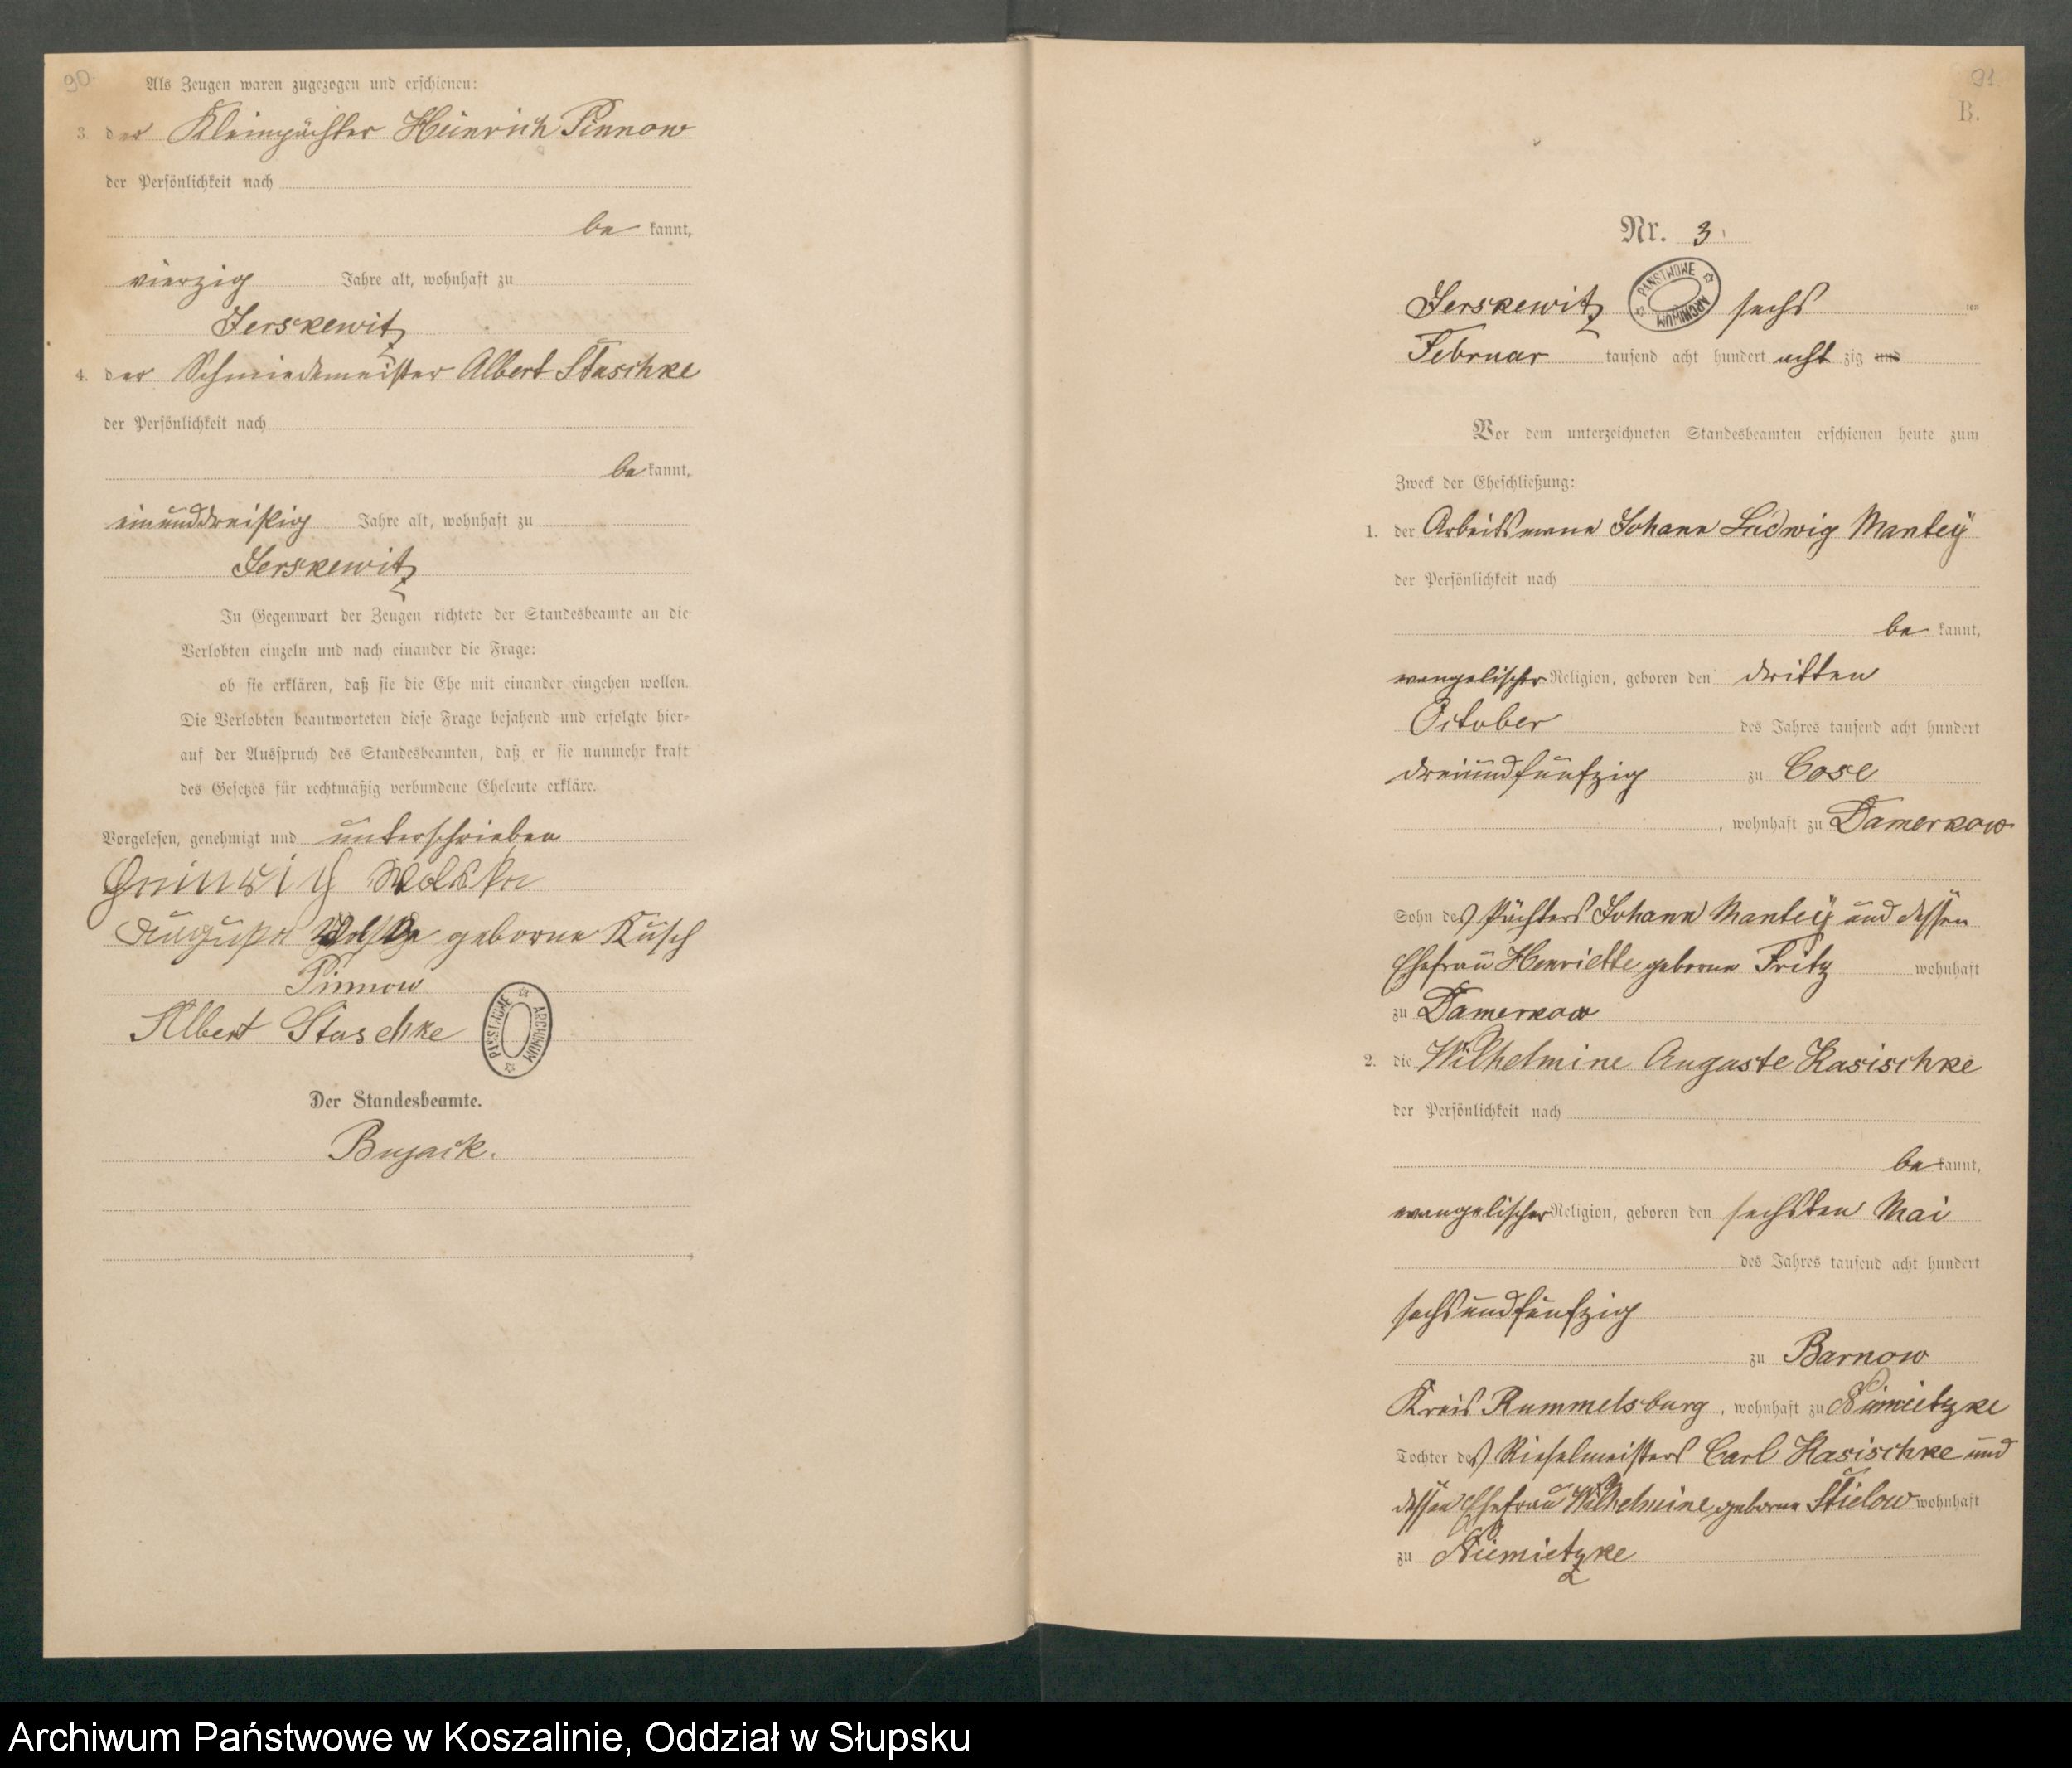 90
Als Zeugen waren zugezogen und erschienen:
3. der Kleinpächter Heinrich Pinnow
der Persönlichkeit nach
be kannt,
vierzig Jahre alt, wohnhaft zu
Jerskewitz
4. der Schmiedemeister Albert Staschke
der Persönlichkeit nach
be kannt,
einunddreißig Jahre alt, wohnhaft zu
Jerskewitz
In Gegenwart der Zeugen richtete der Standesbeamte an die
Verlobten einzeln und nach einander die Frage:
ob sie erklären, daß sie die Ehe mit einander eingehen wollen.
Die Verlobten beantworteten diese Frage bejahend und erfolgte hier-
auf der Ausspruch des Standesbeamten, daß er sie nunmehr kraft
des Gesetzes für rechtmäßig verbundene Eheleute erkläre.
Vorgelesen, genehmigt und unterschrieben
Heinrich
geborne Kusch
Pinnow
Albert Staschke
ARCHIWUM
Der Standesbeamte.
Bujack.
91
B.
Nr. 3
PAŃSTWOWE ARCHIWUM
Jerskewitz sechs ten
Februar tausend acht hundert acht zig und
Vor dem unterzeichneten Standesbeamten erschienen heute zum
Zweck der Eheschließung:
1. der Arbeitsmann Johann Ludwig Manteÿ
der Persönlichkeit nach
be kannt,
evangelischer Religion, geboren den dritten
October des Jahres tausend acht hundert
dreiundfünfzig zu Cose
, wohnhaft zu Damerkow
Sohn des Pächters Johann Manteÿ und dessen
Ehefrau Henriette geborne Fritz wohnhaft
zu Damerkow
2. die Wilhelmine Auguste Kasischke
der Persönlichkeit nach
be kannt,
evangelischer Religion, geboren den sechsten Mai
des Jahres tausend acht hundert
sechsundfünfzig
zu Barnow
Kreis Rummelsburg, wohnhaft zu Niemietzke
Tochter des Rieselmeisters Carl Kasischke und
dessen Ehefrau Wilhelmine geborne Stielow wohnhaft
zu Niemietzke
Archiwum Państwowe w Koszalinie, Oddział w Słupsku